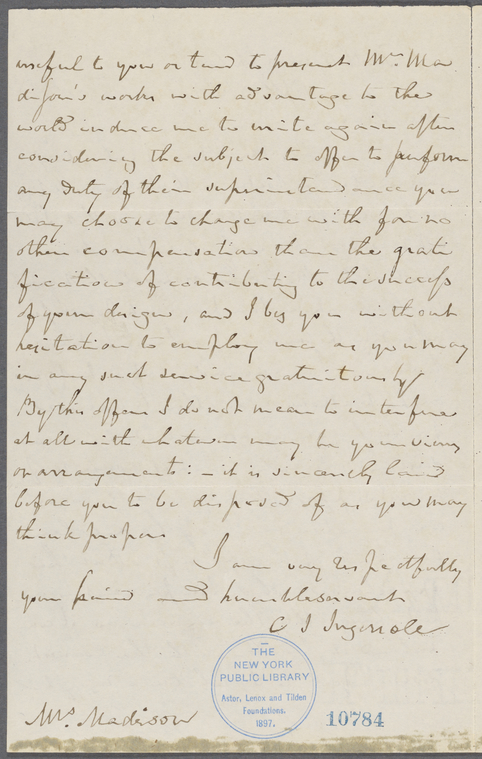 useful to you or tend to present Mr. Ma
dison's works with advantage to the
world induce me to write again after
considering the subject to offer to perform
any duty of their superintendance you
may choose to charge me with for no
other compensation than the grati
fication of contributing to the success
of your design, and I beg you without
hesitation to employ me as you may
in any such service gratuitously
By this offer I do not mean to interfere
at all with whatever may be your views
or arrangements:- it is sincerely laid
before you to be disposed of as you may
think proper
I am very respectfully
your friend and humble servant
C J Ingersoll
Mrs. Madison
THE
NEW YORK
PUBLIC LIBRARY
Astor, Lenox and Tilden
Foundations.
1897.
10784